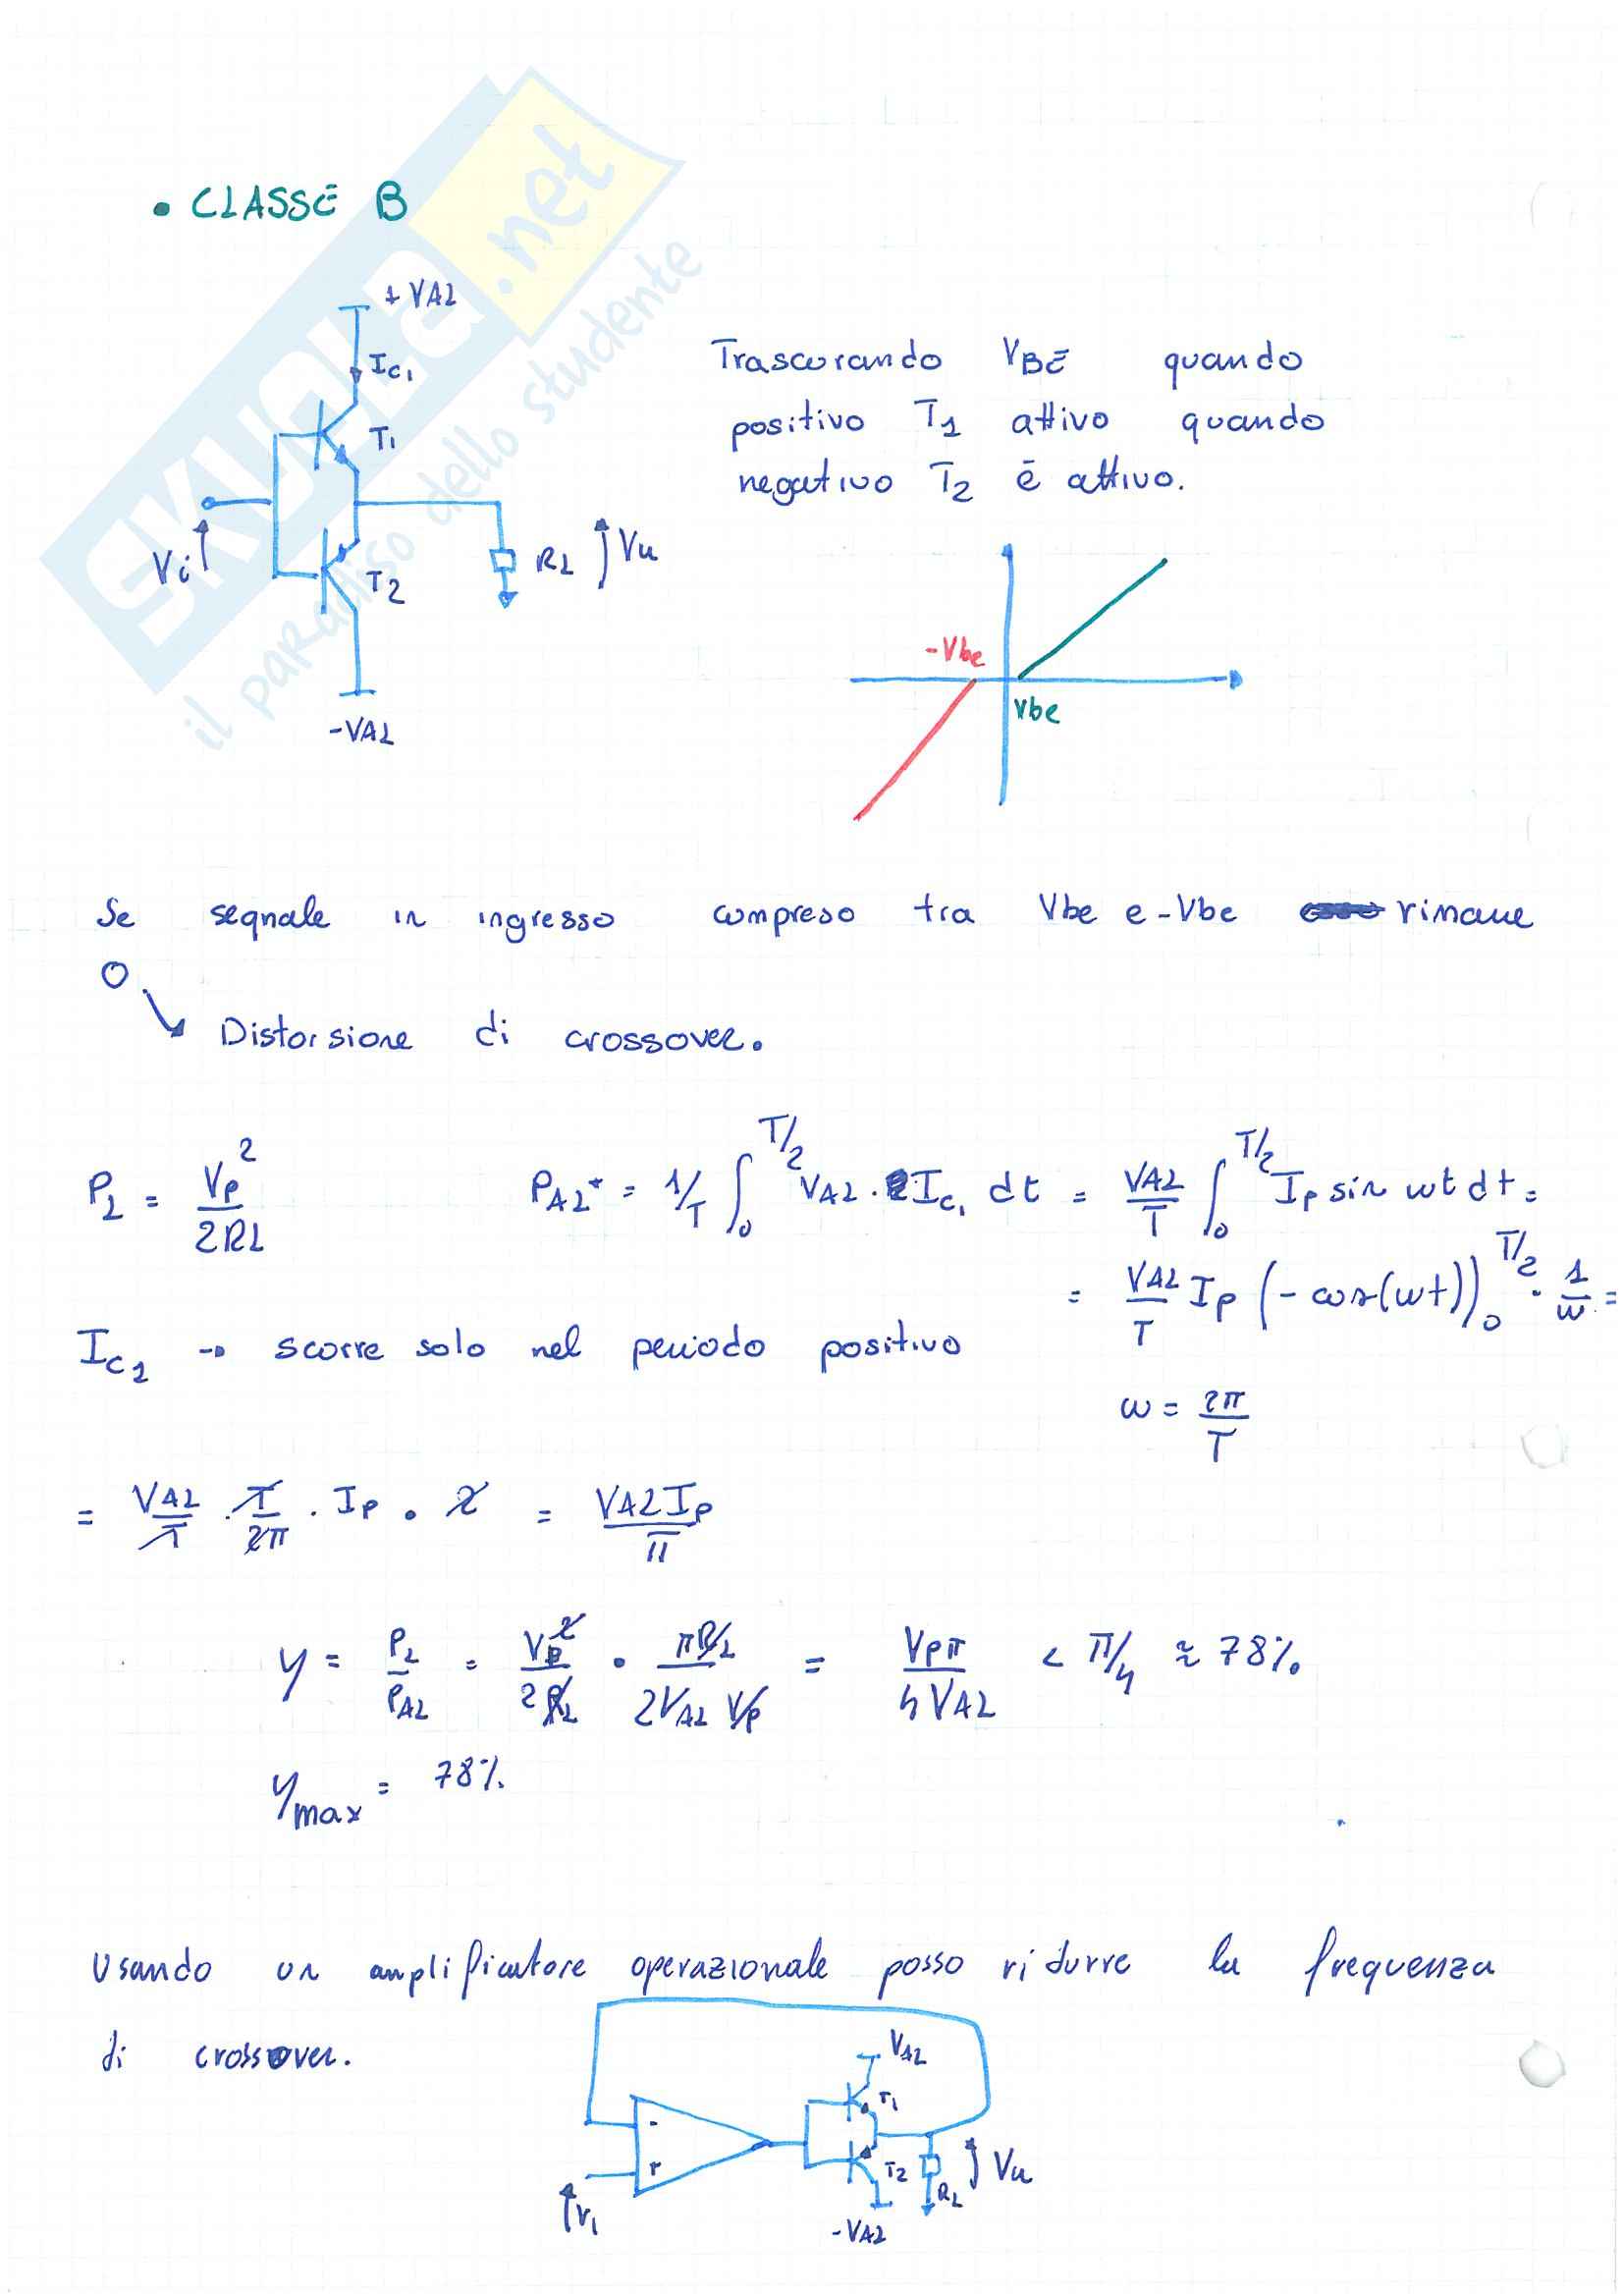 • CLASSE B
+VAL
IC1
T1
Vi
T2
RL
Vu
-VAL
Trascurando VBE quando
positivo T1 attivo quando
negativo T2 è attivo.
-Vbe
Vbe
Se segnale in ingresso compreso tra Vbe e -Vbe rimane
0
↘ Distorsione di crossover.
PL = Vp² / 2RL
PAL⁺ = 1/T ∫₀^T/2 VAL · IC1 dt = VAL/T ∫₀^T/2 Ip sin ωt dt =
= VAL/T Ip (- cos(ωt))₀^T/2 · 1/ω =
IC1 → scorre solo nel periodo positivo
ω = 2π/T
= VAL/T · T/2π · Ip · 2 = VAL Ip / π
η = PL/PAL = Vp²/2RL · πRL/2VAL Vp = Vpπ/4VAL < π/4 ≈ 78%
ηmax = 78%
Usando un amplificatore operazionale posso ridurre la frequenza
di crossover.
VAL
T1
-
+
V1
T2
RL
Vu
-VAL
SKUOLA.net
il paradiso dello studente